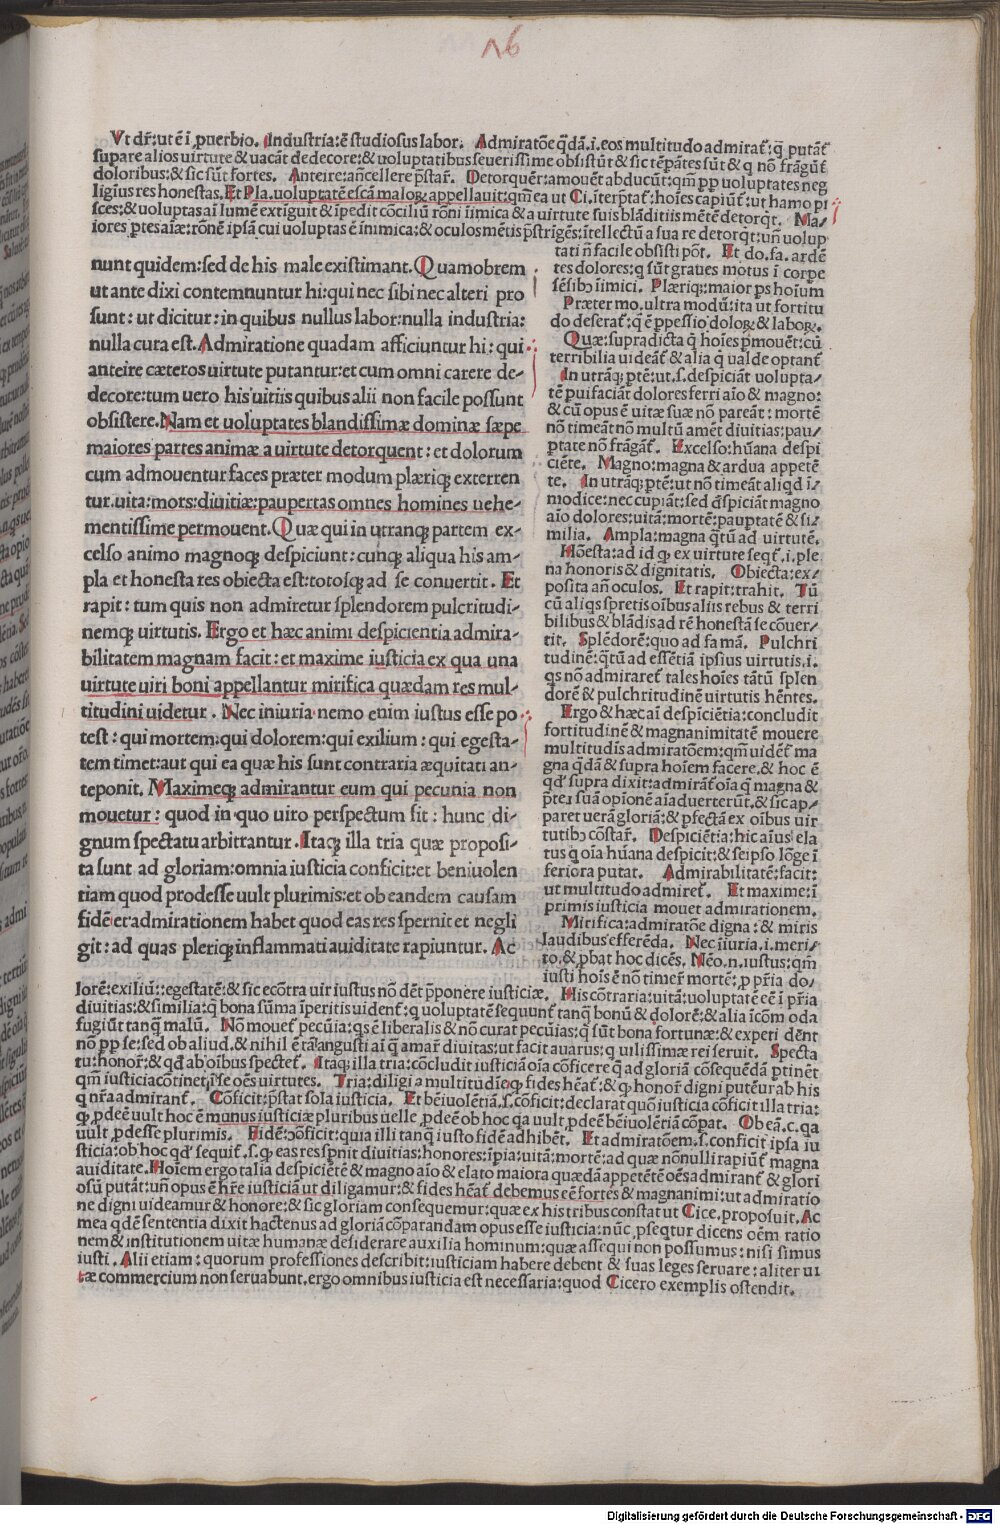 16
Vt dr̄: ut ē ī ꝓuerbio. Industria: ē studiosus labor. Admiratōe q̄dā .i. eos multitudo admirat̄: q̄ putāt̄
supare alios uirtute & uacāt dedecore: & uoluptatibus seuerissime obsistūt & sic tēpātes sūt & q nō frāgūt̄
doloribus: & sic sūt fortes. Anteire: añcellere p̄star̄. Detorquēr: amouēt abducūt: qm̄ pp uoluptates neg
ligiūs res honestas. Et Pla. uoluptatē escā maloꝝ appellauit: qm̄ ea ut Ci. iterp̄tat̄: hoīes capiūt̄: ut hamo pi
sces: & uoluptas aī lumē extiguit & īpedit cōciliū rōni īimica & a uirtute suis blāditiis mētē detorq̄t. Ma-
iores ptes aīæ: rōnē ipsā cui uoluptas ē inimica: & oculos mētis p̄strigēs: ītellectū a sua re detorq̄t: uñ uolup
nunt quidem: sed de his male existimant. Quamobrem
ut ante dixi contemnuntur hi: qui nec sibi nec alteri pro
sunt: ut dicitur: in quibus nullus labor: nulla industria:
nulla cura est. Admiratione quadam afficiuntur hi: qui
anteire cæteros uirtute putantur: et cum omni carere de-
decore: tum uero his uitiis quibus alii non facile possunt
obsistere. Nam et uoluptates blandissimæ dominæ sæpe
maiores partes animæ a uirtute detorquent: et dolorum
cum admouentur faces præter modum plæriqꝫ exterren
tur. uita: mors: diuitiæ: paupertas omnes homines uehe-
mentissime permouent. Quæ qui in utranqꝫ partem ex-
celso animo magnoqꝫ despiciunt: cunqꝫ aliqua his am-
pla et honesta res obiecta est: totosqꝫ ad se conuertit. Et
rapit: tum quis non admiretur splendorem pulcritudi-
nemqꝫ uirtutis. Ergo et hæc animi despicientia admira-
bilitatem magnam facit: et maxime iusticia ex qua una
uirtute uiri boni appellantur mirifica quædam res mul-
titudini uidetur. Nec iniuria nemo enim iustus esse po
test: qui mortem: qui dolorem: qui exilium: qui egesta-
tem timet: aut qui ea quæ his sunt contraria æquitati an-
teponit. Maximeqꝫ admirantur eum qui pecunia non
mouetur: quod in quo uiro perspectum sit: hunc di-
gnum spectatu arbitrantur. Itaqꝫ illa tria quæ proposi-
ta sunt ad gloriam: omnia iusticia conficit: et beniuolen
tiam quod prodesse uult plurimis: et ob eandem causam
fidē et admirationem habet quod eas res spernit et negli
git: ad quas pleriqꝫ inflammati auiditate rapiuntur. Ac
tati ñ facile obsisti pōt. Et do. fa. ardē
tes dolores: q sūt graues motus ī corpe
sēsibꝫ īimici. Plæriqꝫ: maior ps hoīum
Præter mo. ultra modū: ita ut fortitu
do deserat̄: q̄ ē ꝑpessio doloꝝ & laboꝝ.
Quæ: supradicta q̄ hoīes pmouēt: cū
terribilia uideāt̄ & alia q̄ ualde optant̄
In utrāqꝫ ptē: ut .s. despiciāt uolupta-
tē pui faciāt dolores ferri aīo & magno:
& cū opus ē uitæ suæ nō pareāt: mortē
nō timeāt nō multū amēt diuitias: pau-
ptate nō frāgāt̄. Excelso: hūana despi
ciēte. Magno: magna & ardua appetē
te. In utrāqꝫ ptē: ut nō timeāt aliqd ī-
modice: nec cupiāt: sed d̄spiciāt magno
aīo dolores: uitā: mortē: pauptatē & si-
milia. Ampla: magna q̄tū ad uirtutē.
Hōesta: ad id qꝫ ex uirtute seqt̄ .i. ple
na honoris & dignitatis. Obiecta: ex-
posita añ oculos. Et rapit: trahit. Tū
cū aliqs spretis oībus aliis rebus & terri
bilibus & blādis ad rē honestā se cōuer-
tit. Splēdorē: quo ad famā. Pulchri
tudinē: q̄tū ad essētiā ipsius uirtutis .i.
qs nō admiraret̄ tales hoīes tātū splen
dorē & pulchritudinē uirtutis hñtes.
Ergo & hæc aī despiciētia: concludit
fortitudinē & magnanimitatē mouere
multitudīs admiratōem: qm̄ uidēt̄ ma
gna q̄dā & supra hoīem facere. & hoc ē
qd̄ supra dixit: admirāt̄ oīa q̄ magna &
p̄ter suā opionē aīaduerterūt. & sic ap-
paret uerā gloriā: & pfectā ex oībus uir
tutibꝫ cōstar̄. Despiciētia: hic aīus ela
tus q̄ oīa hūana despicit: & seipso lōge ī
feriora putat. Admirabilitatē: facit:
ut multitudo admiret̄. Et maxime: ī
primis iusticia mouet admirationem.
Mirifica: admiratōe digna: & miris
laudibus efferēda. Nec iiuria .i. meri-
to. & ꝓbat hoc dicēs. Nēo .n. iustus: qm̄
iusti hoīs ē nō timer̄ mortē: ꝓ pr̄ia do-
lorē: exiliū: egestatē: & sic ecōtra uir iustus nō dēt p̄ponere iusticiæ. His cōtraria: uitā: uoluptatē eē ī pr̄ia
diuitias: & similia: q̄ bona sūma īperitis uident̄: q uoluptatē sequunt̄ tanq̄ bonū & dolorē: & alia īcom oda
fugiūt tanq̄ malū. Nō mouet̄ pecūia: qs ē liberalis & nō curat pecūias: q̄ sūt bona fortunæ: & experi dēnt
nō pp se: sed ob aliud. & nihil ē tā angusti aī q̄ amar̄ diuitas: ut facit auarus: q uilissimæ rei seruit. Specta
tu: honor̄: & qd̄ ab oībus spectet̄. Itaqꝫ illa tria: cōcludit iusticiā oīa cōficere q̄ ad gloriā cōsequēdā ptinēt
qm̄ iusticia cōtinet ī se oēs uirtutes. Tria: diligi a multitudie qꝫ fides hēat̄: & qꝫ honor̄ digni putēur ab his
q nr̄a admirant̄. Cōficit: p̄stat sola iusticia. Et bēiuolētiā .s. cōficit: declarat quō iusticia cōficit illa tria:
qꝫ ꝓdeē uult hoc ē munus iusticiæ pluribus uelle ꝓdeē ob hoc qa uult ꝓdeē bēiuolētiā cōpat. Ob eā. c. qa
uult ꝓdesse plurimis. Fidē: ꝯficit: quia illi tanq̄ iusto fidē adhibēt. Et admiratōem .s. conficit ipsa iu
sticia: ob hoc qd̄ sequit̄ .s. qꝫ eas res spnit diuitias: honores: īpia: uitā: mortē: ad quæ nōnulli rapiūt̄ magna
auiditate. Hoīem ergo talia despiciētē & magno aīo & elato maiora quædā appetētē oēs admirant̄ & glori
osū putāt: uñ opus ē hr̄e iusticiā ut diligamur: & fides hēat̄ debemus eē fortes & magnanimi: ut admiratio
ne digni uideamur & honore: & sic gloriam consequemur: quæ ex his tribus constat ut Cice. proposuit. Ac
mea qdē sententia dixit hactenus ad gloriā cōparandam opus esse iusticia: nūc ꝓseqtur dicens oēm ratio
nem & institutionem uitæ humanæ desiderare auxilia hominum: quæ assequi non possumus: nisi simus
iusti. Alii etiam: quorum professiones describit: iusticiam habere debent & suas leges seruare: aliter ui
tæ commercium non seruabunt. ergo omnibus iusticia est necessaria: quod Cicero exemplis ostendit.
Digitalisierung gefördert durch die Deutsche Forschungsgemeinschaft - DFG